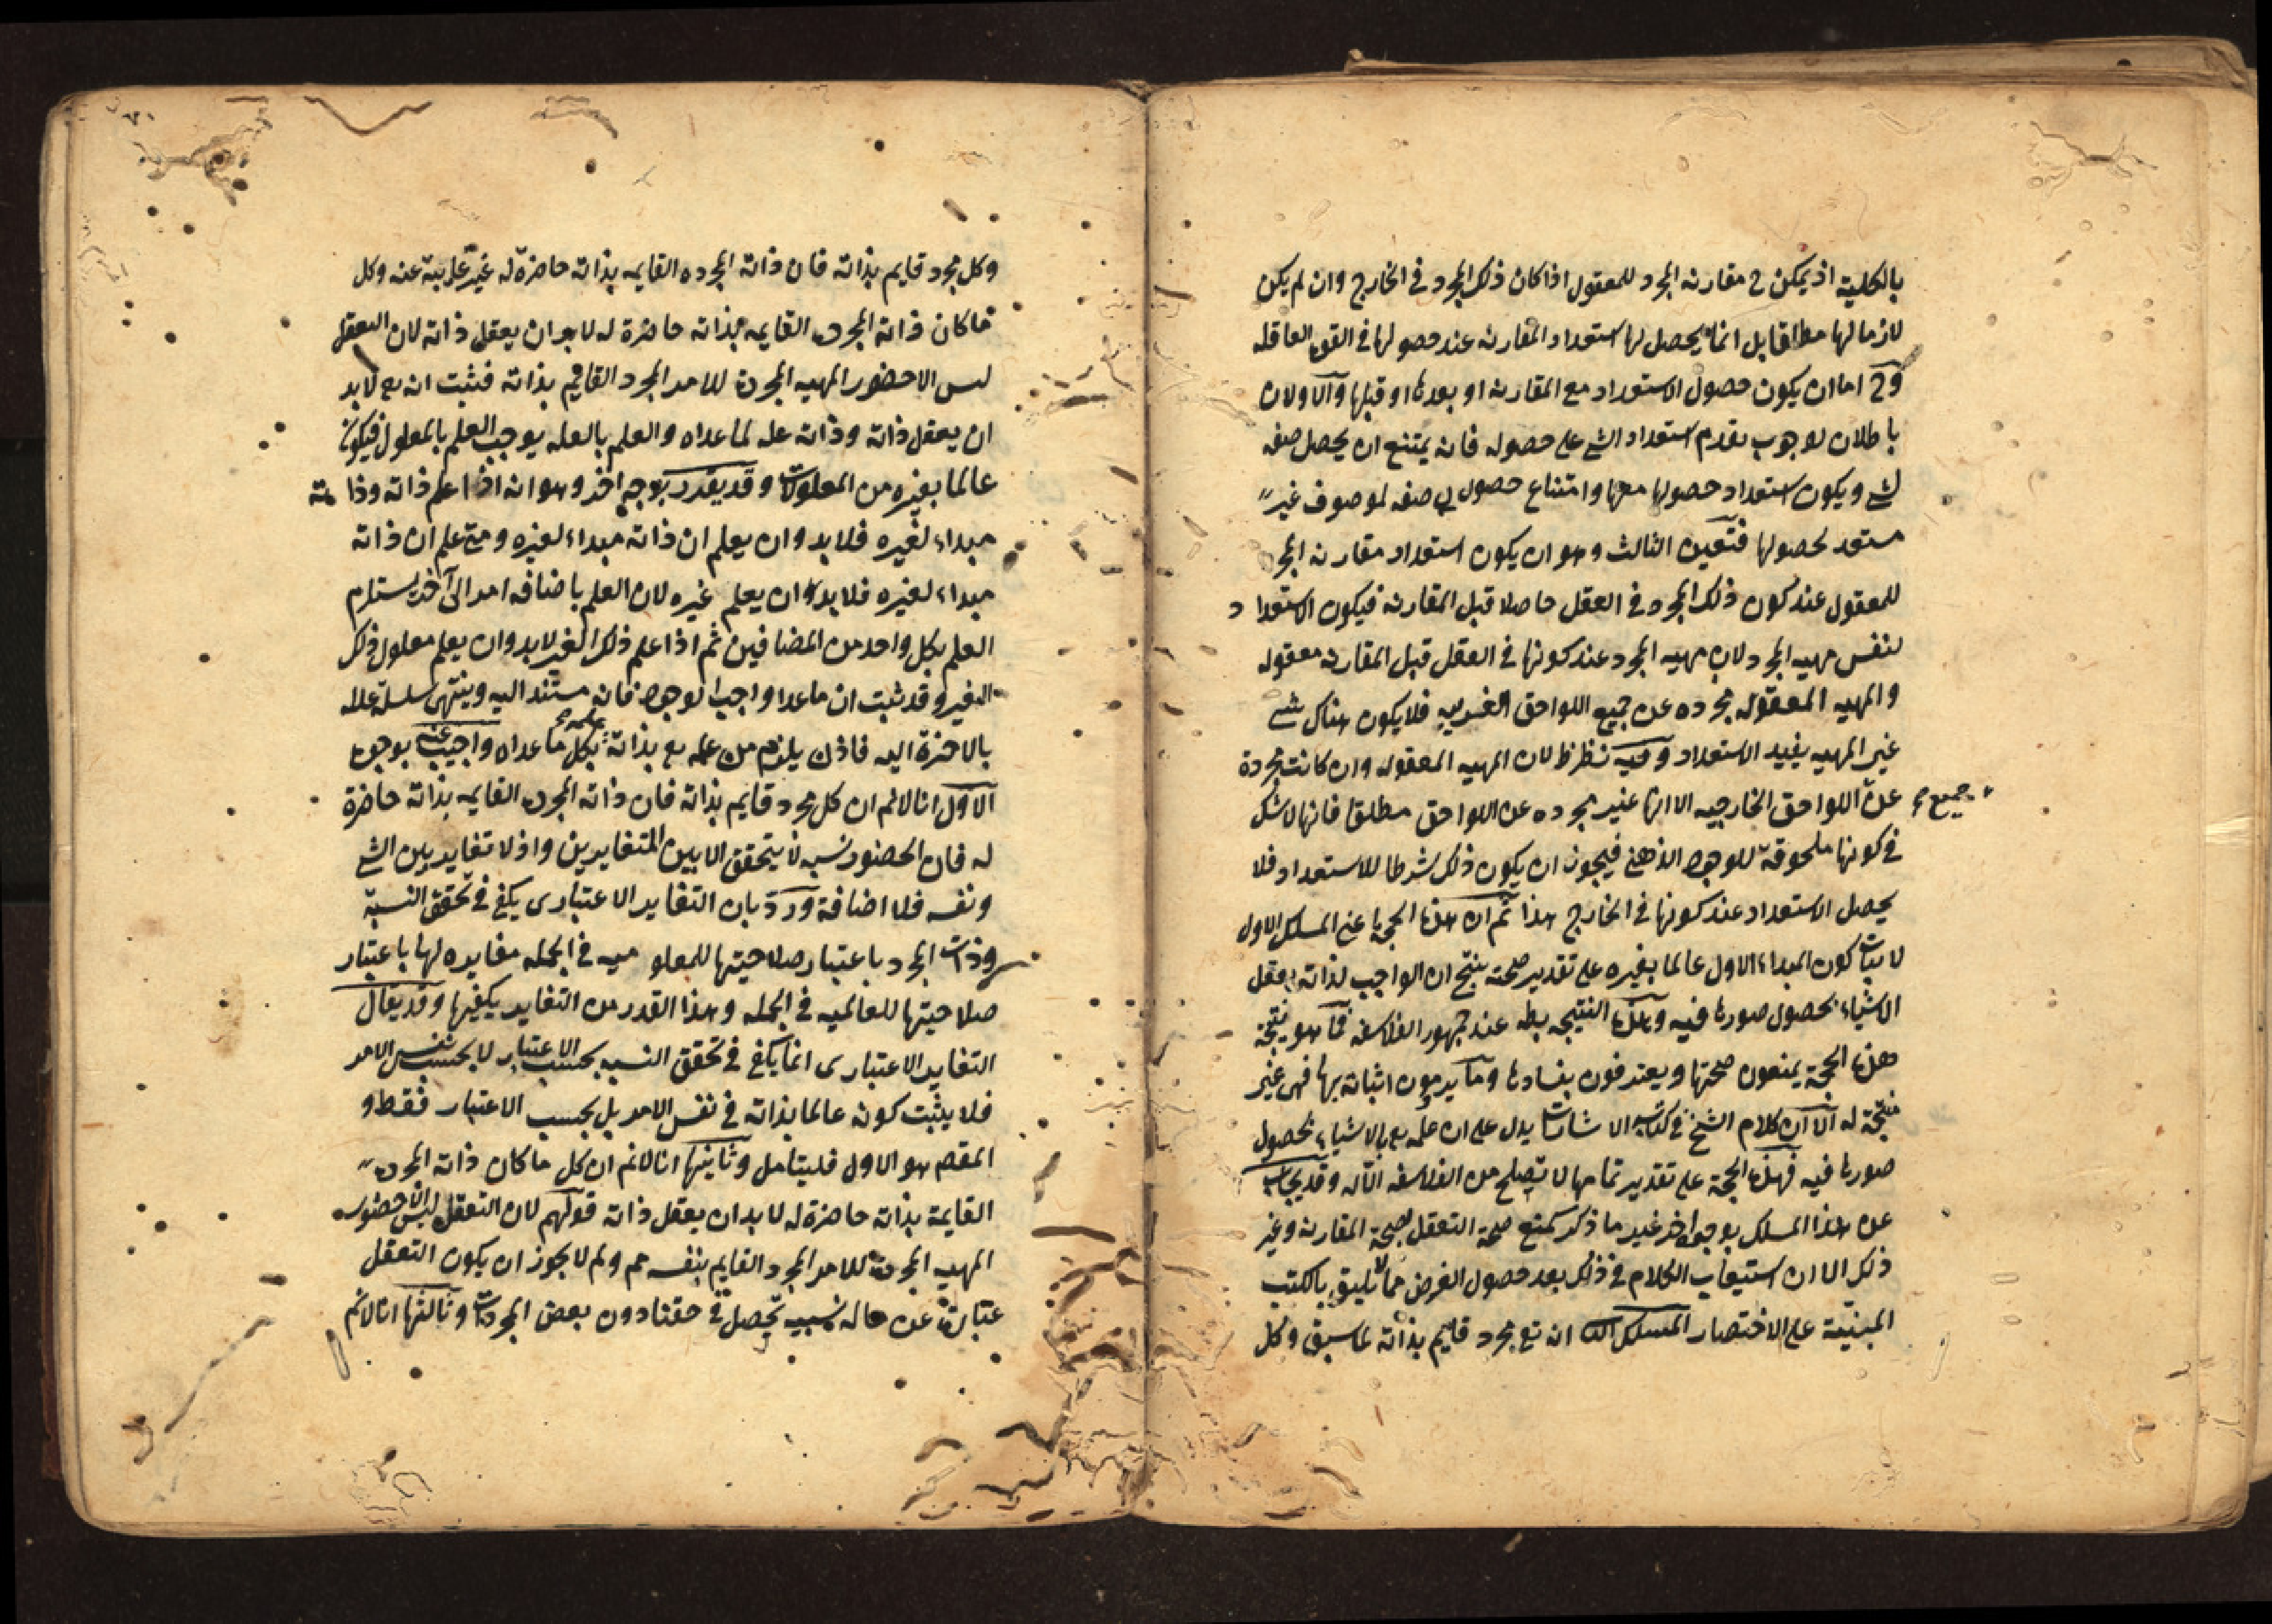 بالكلية اذ يمكن ح مقارنه المجرد للمعقول اذا كان ذلك المجرد في الخارج وان لم يكن
لازما لها مطلقا بل انما يحصل لها استعداد المقارنه عند حصولها في القوه العاقله
وح اما ان يكون حصول الاستعداد مع المقارنه او بعدها او قبلها والاولان
باطلان لوجوب تقدم استعداد الشي على حصوله فانه يمتنع ان يحصل صفه
لشي ويكون استعداد حصولها معها وامتناع حصول صفه لموصوف غير
مستعد لحصولها فتعين الثالث وهو ان يكون استعداد مقارنه المجرد
للمعقول عند كون ذلك المجرد في العقل حاصلا قبل المقارنه فيكون الاستعداد
لنفس مهيه المجرد لان مهيه المجرد عند كونها في العقل قبل المقارنه معقوله
والمهيه المعقوله مجرده عن جميع اللواحق الغريبه فلا يكون هناك شي
غير المهيه يفيد الاستعداد وفيه نظر لان المهيه المعقوله وان كانت مجردة
عن اللواحق الخارجيه الا انها غير مجرده عن اللواحق مطلقا فانها لا شك
جميع
في كونها ملحوقة للوجود الذهني فيجوز ان يكون ذلك شرطا للاستعداد فلا
يحصل الاستعداد عند كونها في الخارج هذا ثم ان هذه الحجة اعني المسلك الاول
لاثبات كون المبداء الاول عالما بغيره على تقدير صحته ينتج ان الواجب لذاته يعقل
الاشياء بحصول صورها فيه وتلك النتيجه بطه عند جمهور الفلاسفه فما هو نتيجة
هذه الحجة يمنعون صحتها ويعترفون بفسادها وما يرومون اثباته بها فهي غير
منتجة له الا ان كلام الشيخ في كتاب الاشارات يدل على ان علمه تع بالاشياء بحصول
صورها فيه فهذه الحجة على تقدير تمامها لا تصلح من الفلاسفه الا له وقد يجاب
عن هذا المسلك بوجوه اخر غير ما ذكر كمنع صحة التعقل لصحة المقارنه وغير
ذلك الا ان استيعاب الكلام في ذلك بعد حصول الغرض مما لا يليق بالكتب
المبنية على الاختصار المسلك الثاني انه تع مجرد قايم بذاته لما سبق وكل
وكل مجرد قايم بذاته فان ذاته المجرده القايمه بذاته حاضرة له غير غايبة عنه وكل
ما كان ذاته المجرده القايمه بذاته حاضرة له لابد ان يعقل ذاته لان التعقل
ليس الا حضور المهيه المجردة للامر المجرد القائم بذاته فثبت انه تع لابد
ان يعقل ذاته وذاته علة لما عداه والعلم بالعله يوجب العلم بالمعلول فيكون
عالما بغيره من المعلولات وقد يقرر بوجه اخر وهو انه اذا علم ذاته وذاته
مبداء لغيره فلابد وان يعلم ان ذاته مبداء لغيره ومتى علم ان ذاته
مبداء لغيره فلابد وان يعلم غيره لان العلم باضافه امر الى آخر يستلزم
العلم بكل واحد من المضافين ثم اذا علم ذلك الغير لابد وان يعلم معلول ذلك
الغير وقد ثبت ان ما عدا واجب الوجود فانه مستند اليه وينتهي سلسلة علله
بالاخرة اليه فاذن يلزم من علمه تع بذاته علمه بكل ما عداه واجيب عنه بوجوه
الاول انا لانم ان كل مجرد قايم بذاته فان ذاته المجرده القايمه بذاته حاضرة
له فان الحضور نسبه لا يتحقق الا بين المتغايرين واذ لا تغاير بين الشي
ونفسه فلا اضافة ورد بان التغاير الاعتباري يكفي في تحقق النسبة
وذات المجرد باعتبار صلاحيتها للمعلوميه في الجمله مغايره لها باعتبار
صلاحيتها للعالميه في الجمله وهذا القدر من التغاير يكفيها وقد يقال
التغاير الاعتباري انما يكفي في تحقق النسبه بحسب الاعتبار لا بحسب نفس الامر
فلا يثبت كونه عالما بذاته في نفس الامر بل بحسب الاعتبار فقط و
المقصم هو الاول فليتامل وثانيها انا لانم ان كل ما كان ذاته المجرده
القايمة بذاته حاضرة له لابد ان يعقل ذاته قولهم لان التعقل ليس الا حضور
المهيه المجردة للامر المجرد القايم بنفسه مم ولم لا يجوز ان يكون التعقل
عبارة عن حالة نسبيه تحصل في حقنا دون بعض المجردات وثالثها انا لانم